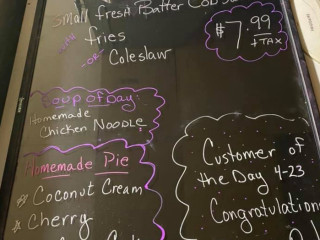 Small fresh Batter Cod
fries
-OR- Coleslaw
$7.99
+TAX
Soup of Day:
Homemade
Chicken Noodle
Homemade Pie
Coconut Cream
Cherry
Customer of
the Day 4-23
Congratulation